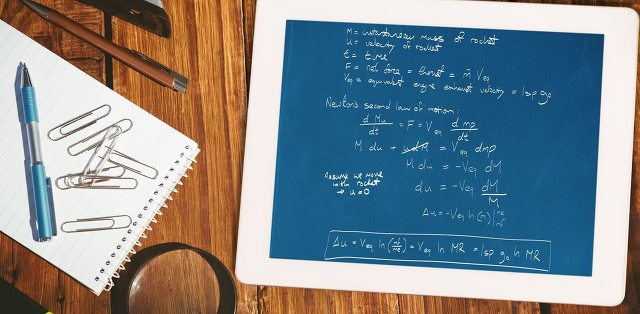 M = instantaneous mass of rocket
u = velocity of rocket
t = time
F = net force = thrust = ṁ Veq
Veq = equivalent engine exhaust velocity = Isp g₀
Newton's second law of motion
d Mu / dt = F = Veq d mp / dt
M du + u dM = Veq dmp
M du = -Veq dM
Assume we move
with rocket
→ u = 0
du = -Veq dM / M
Δu = -Veq ln (m)
Δu = Veq ln = Veq ln MR = Isp g₀ ln MR